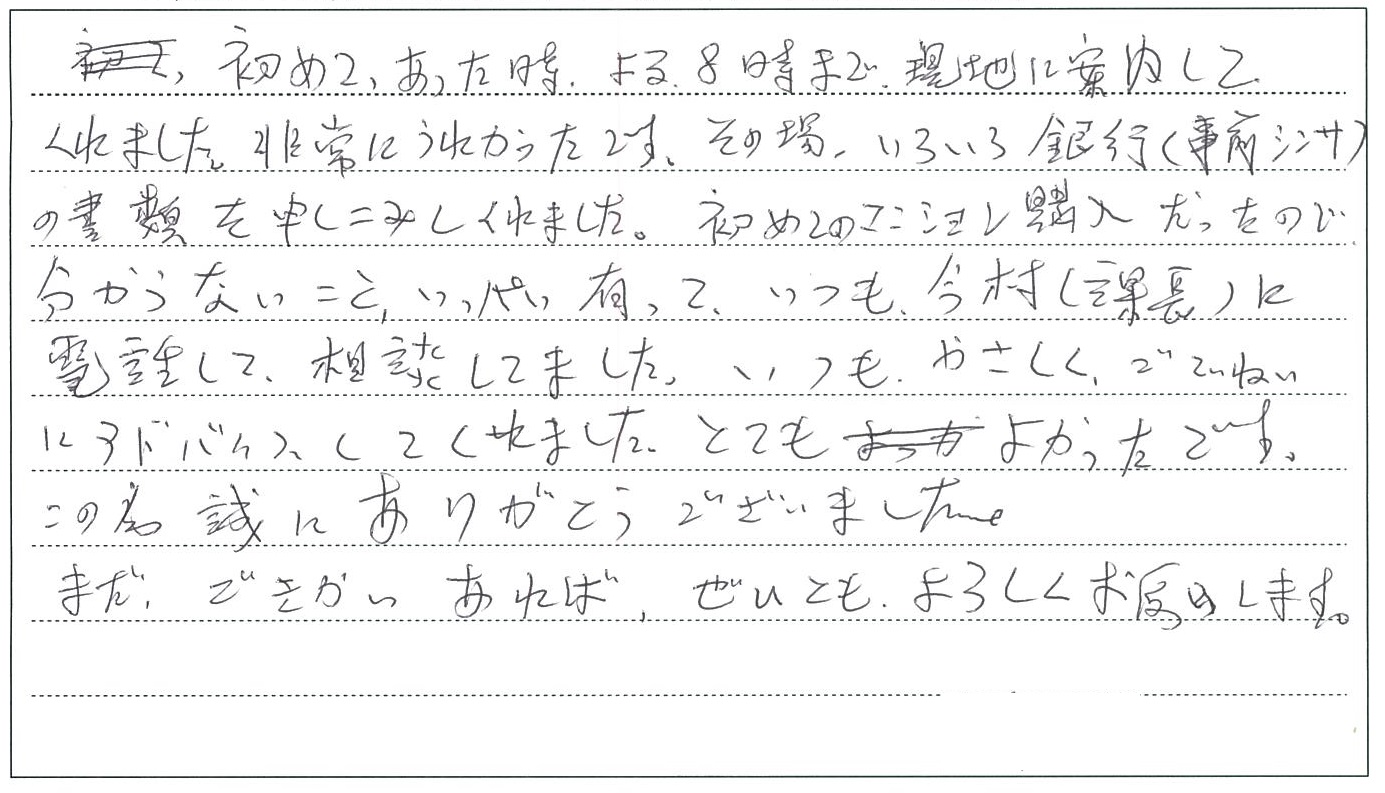 初めて、あった時、よる、8時まで、現地に案内して
くれました。非常にうれかったです。その場、いろいろ銀行(事前シンサ)
の書類を申しこみしくれました。初めてのマンション購入だったので
分からないこと、いっぱい有って、いつも、今村(課長)に
電話して、相談してました。いつも、やさしく、ごていねい
にアドバイスしてくれました。とてもよかったです。
この為誠にありがとうございました
まだ、ごきかいあれば、ぜひとも、よろしくお願いします。